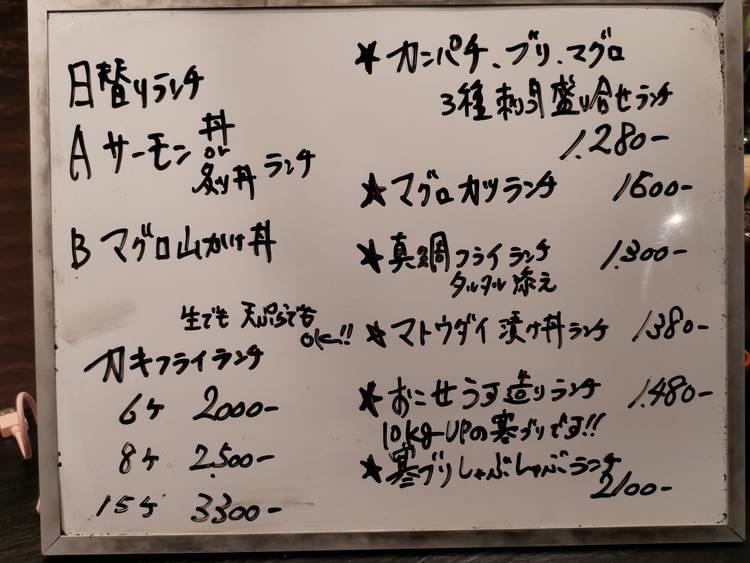 日替りランチ
A サーモン丼
or
炙り丼 ランチ
B マグロ山かけ丼
生でも 天ぷらでも
ok!!
カキフライランチ
6ケ 2000-
8ケ 2.500-
15ケ 3300-
★ カンパチ、ブリ、マグロ
3種 刺身盛り合せランチ
1.280-
★ マグロカツランチ 1600-
★ 真鯛フライランチ 1.300-
タルタル添え
★ マトウダイ 漬け丼ランチ 1380-
★ おこぜうす造りランチ 1.480-
10kg-UPの寒ブリです!!
★ 寒ブリしゃぶしゃぶランチ
2100-